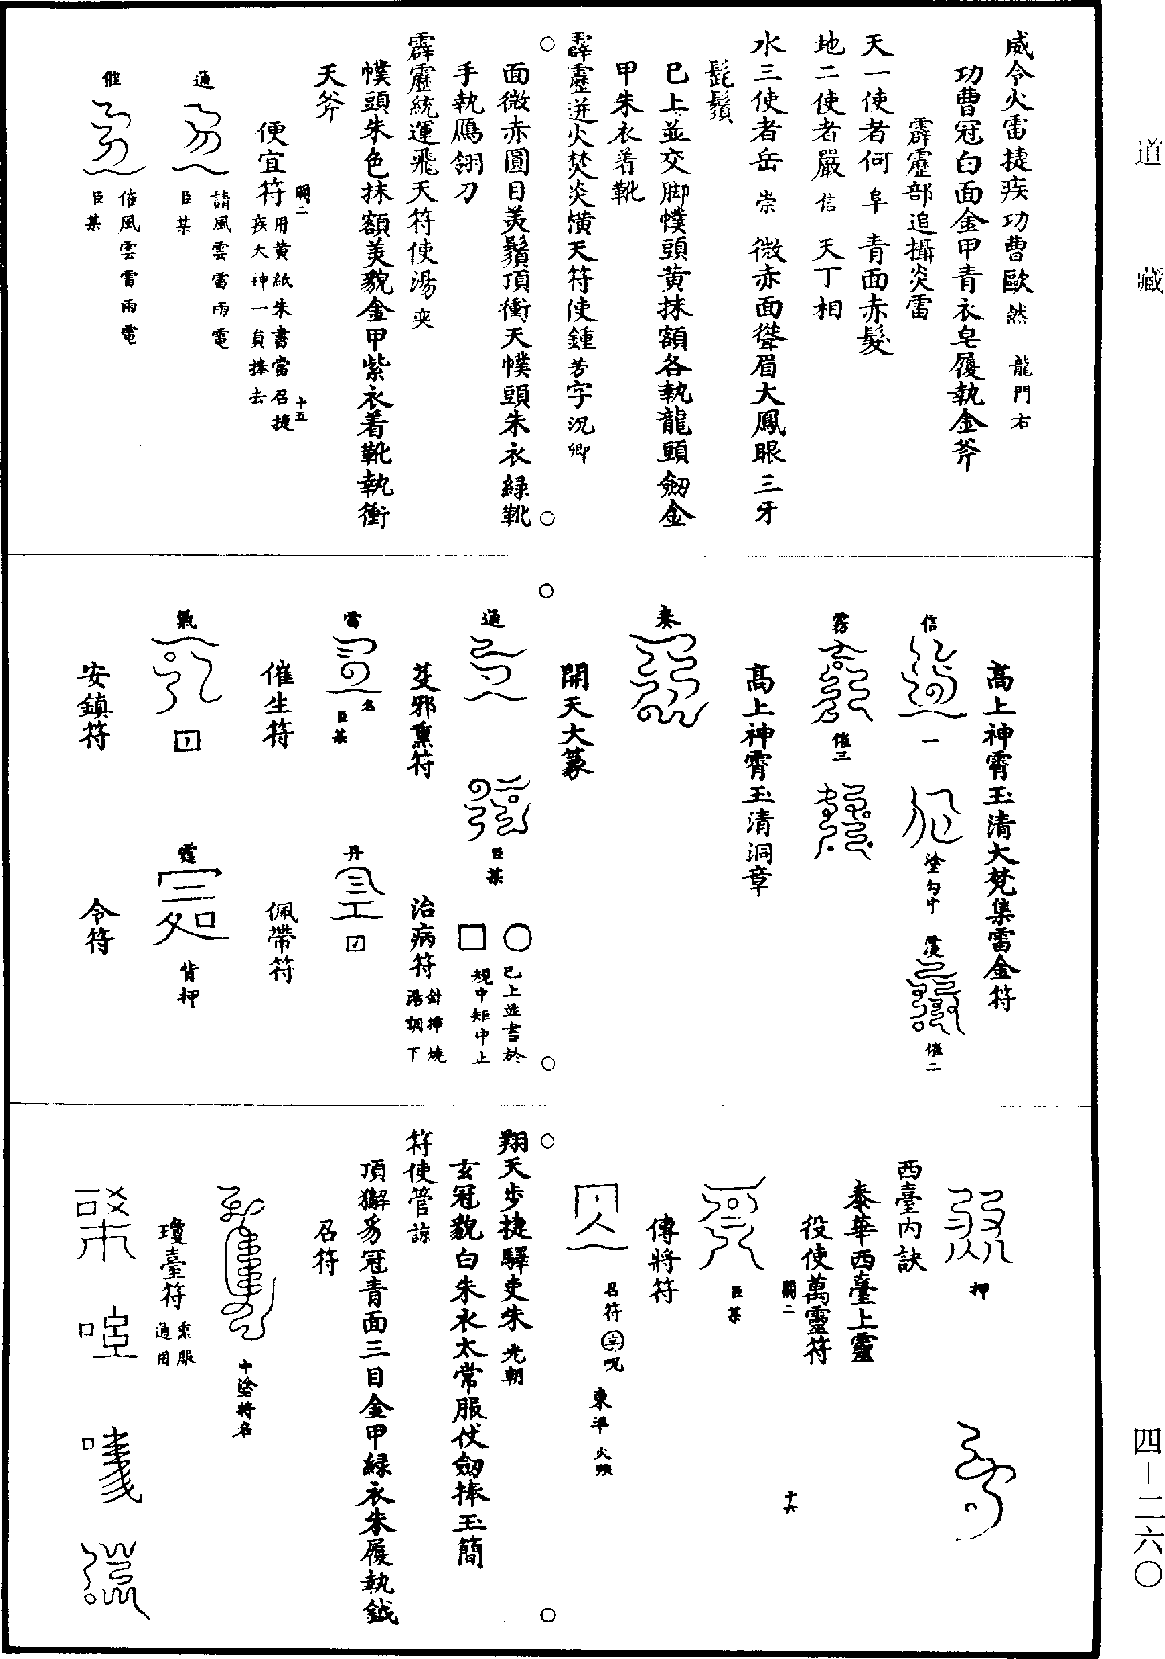 道藏
四—二六〇
威令火雷捷疾功曹歐然 龍門右
功曹冠白面金甲青衣皂履執金斧
霹靂部追攝炎雷
天一使者何阜 青面赤髮
地二使者嚴信 天丁相
水三使者岳崇 微赤面聳眉大鳳眼三牙
髭鬚
已上並交脚幞頭黃抹額各執龍頭劒金
甲朱衣着靴
霹靂迸火焚炎熿天符使鍾芳字況卿
面微赤圓目美鬚頂衝天幞頭朱衣綠靴
手執鴈翎刀
霹靂統運飛天符使湯㚒
幞頭朱色抹額美貌金甲紫衣着靴執衝
天斧
便宜符 用黃紙朱書當召捷
疾大神一員捧去
關二
十五
通
請風雲雷雨電
臣某
催
催風雲雷雨電
臣某
高上神霄玉清大梵集雷金符
信
一
塗勾中
催二
霧
催三
高上神霄玉清洞章
奏
開天大篆
通
臣某
已上並書於
規中矩中上
芟邪熏符
治病符
湯調下
雷
名
臣某
丹
催生符
佩帶符
氣
霆
背押
安鎮符
令符
押
西臺內訣
泰華西臺上靈
役使萬靈符
關二
十六
臣某
傳將符
召符
呪
東準
火
翔天步捷驛吏朱光朝
玄冠貌白朱衣太常服仗劒捧玉簡
符使管諒
頂獬豸冠青面三目金甲綠衣朱履執鉞
召符
十塗將名
瓊臺符
通用